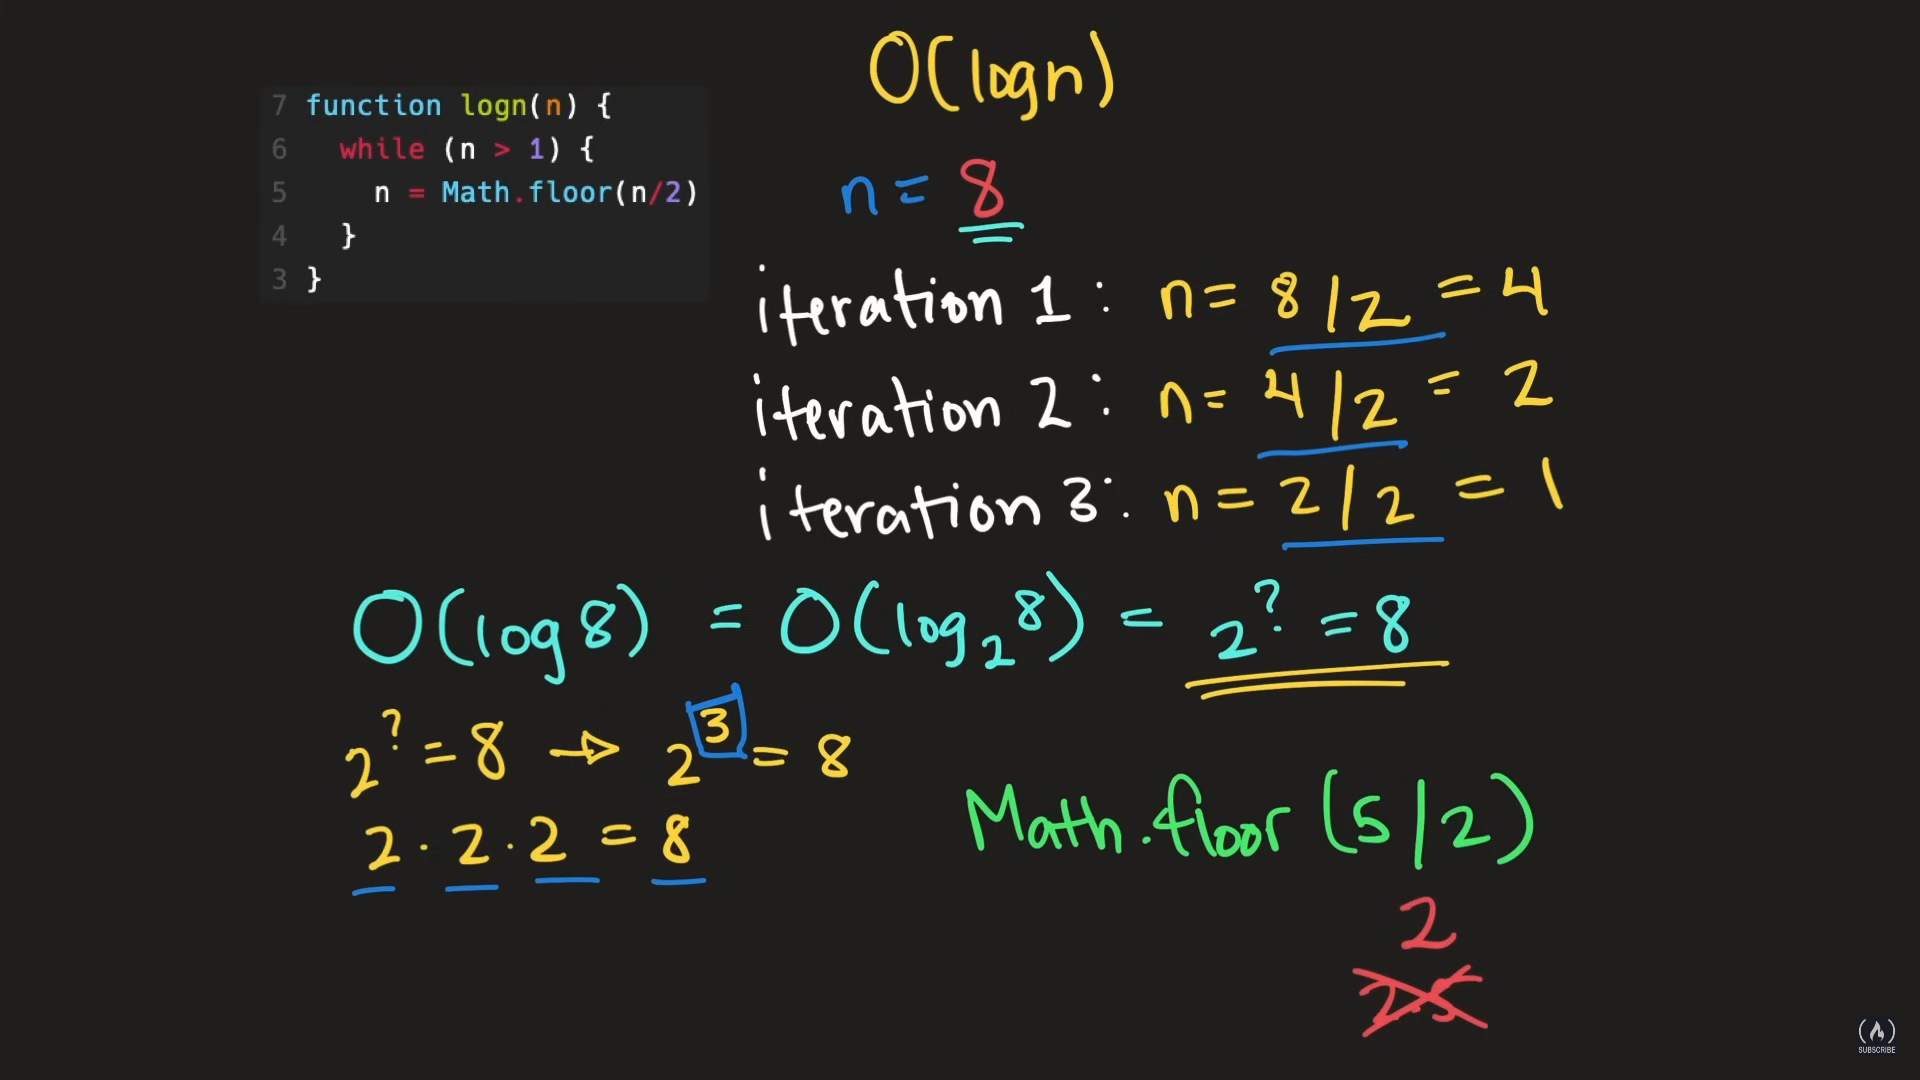 O(logn)
7 function logn(n) {
6 while (n > 1) {
5 n = Math.floor(n/2)
4 }
3 }
n = 8
iteration 1: n = 8/2 = 4
iteration 2: n = 4/2 = 2
iteration 3: n = 2/2 = 1
O(log 8) = O(log₂8) = 2^? = 8
2^? = 8 → 2^3 = 8
2 · 2 · 2 = 8
Math.floor(5/2)
2
2.5
SUBSCRIBE